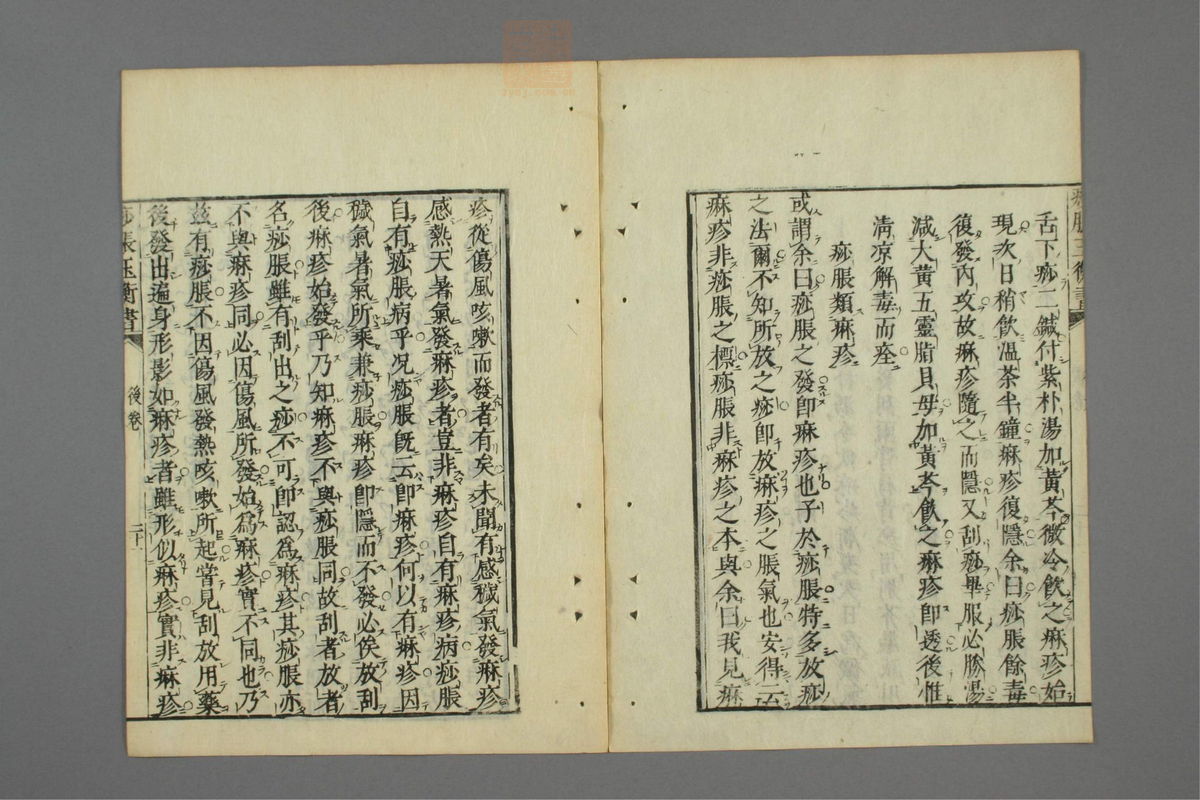 痧脹玉衡書
舌下痧二鍼付紫朴湯加黃芩微冷飲之麻疹始
現次日稍飲溫茶半鐘麻疹復隱余曰痧脹餘毒
復發內攻故麻疹隨之而隱又刮痧畢服必勝湯
減大黃五靈脂貝母加黃芩飲之麻疹即透後惟
淸凉解毒而痊
痧脹類麻疹
或謂余曰痧脹之發卽麻疹也子於痧脹特多放痧
之法爾不知所放之痧卽放麻疹之脹氣也安得云
麻疹非痧脹之標痧脹非麻疹之本與余曰我見麻
疹從傷風咳嗽而發者有矣未聞有感穢氣發麻疹
感熱天暑氣發麻疹者豈非麻疹自有麻疹病痧脹
自有痧脹病乎况痧脹旣云卽麻疹何以有麻疹因
穢氣暑氣所乘兼痧脹麻疹卽隱而不發必俟放刮
後麻疹始發乎乃知麻疹不與痧脹同故刮者放者
名痧脹雖有刮出之痧不可卽認爲麻疹其痧脹亦
不與麻疹同必因傷風所發始爲麻疹實不同也乃
玆有痧脹不因傷風發熱咳嗽所起當見刮放用藥
後發出遍身形影如麻疹者雖形似麻疹實非麻疹
痧脹玉衡書
後卷
二十一